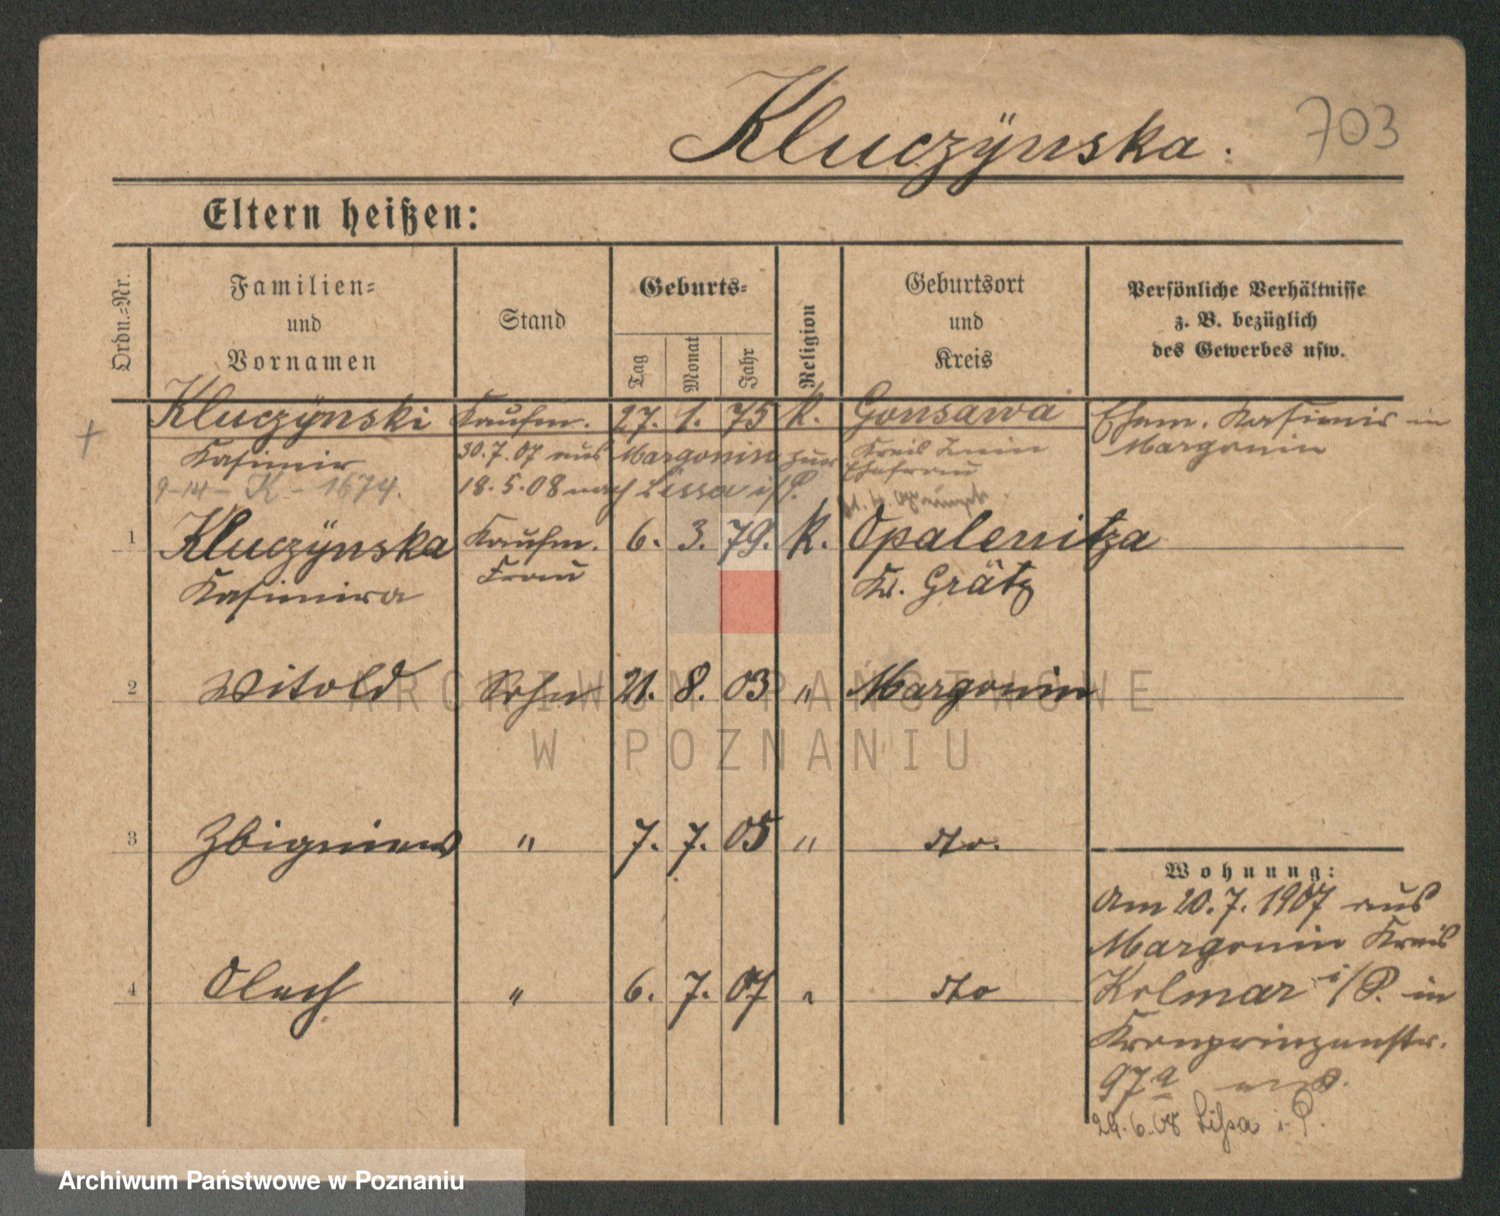 Kluczÿnska. 703
Eltern heißen:
Ordn.-Nr.
Familien-
und
Vornamen
Stand
Geburts-
Tag
Monat
Jahr
Religion
Geburtsort
und
Kreis
Persönliche Verhältnisse
z. B. bezüglich
des Gewerbes usw.
Kluczÿnski Kaufm. 27. 1. 75 K. Gonsawa Ehem. Kasimir in
Kasimir 30.7.07 aus Margonin zur Kreis Znin Margonin
Ehefrau
9-14- K - 1674. 18.5.08 nach Lissa i/P.
1 Kluczÿnska Kaufm. 6. 3. 79. K. Opalenitza
Kasimira Frau Kr. Grätz
2 Witold Sohn 21. 8. 03 " Margonin
3 Zbigniew " 7. 7. 05 " dto.
Wohnung:
Am 20.7.1907 aus
Margonin Kreis
4 Olech " 6. 7. 07 " dto Kolmar i/P. in
Kronprinzenstr.
97a
29.6.08 Lissa i. P.
ARCHIWUM PAŃSTWOWE
W POZNANIU
Archiwum Państwowe w Poznaniu